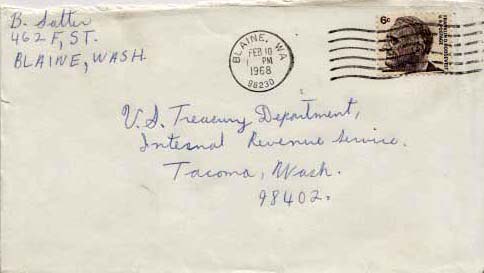 B. Satter
462 F, ST.
BLAINE, WASH
BLAINE, WA
FEB 10
PM
1968
98230
6c
U.S. Treasury Department,
Internal Revenue Service.
Tacoma, Wash.
98402.